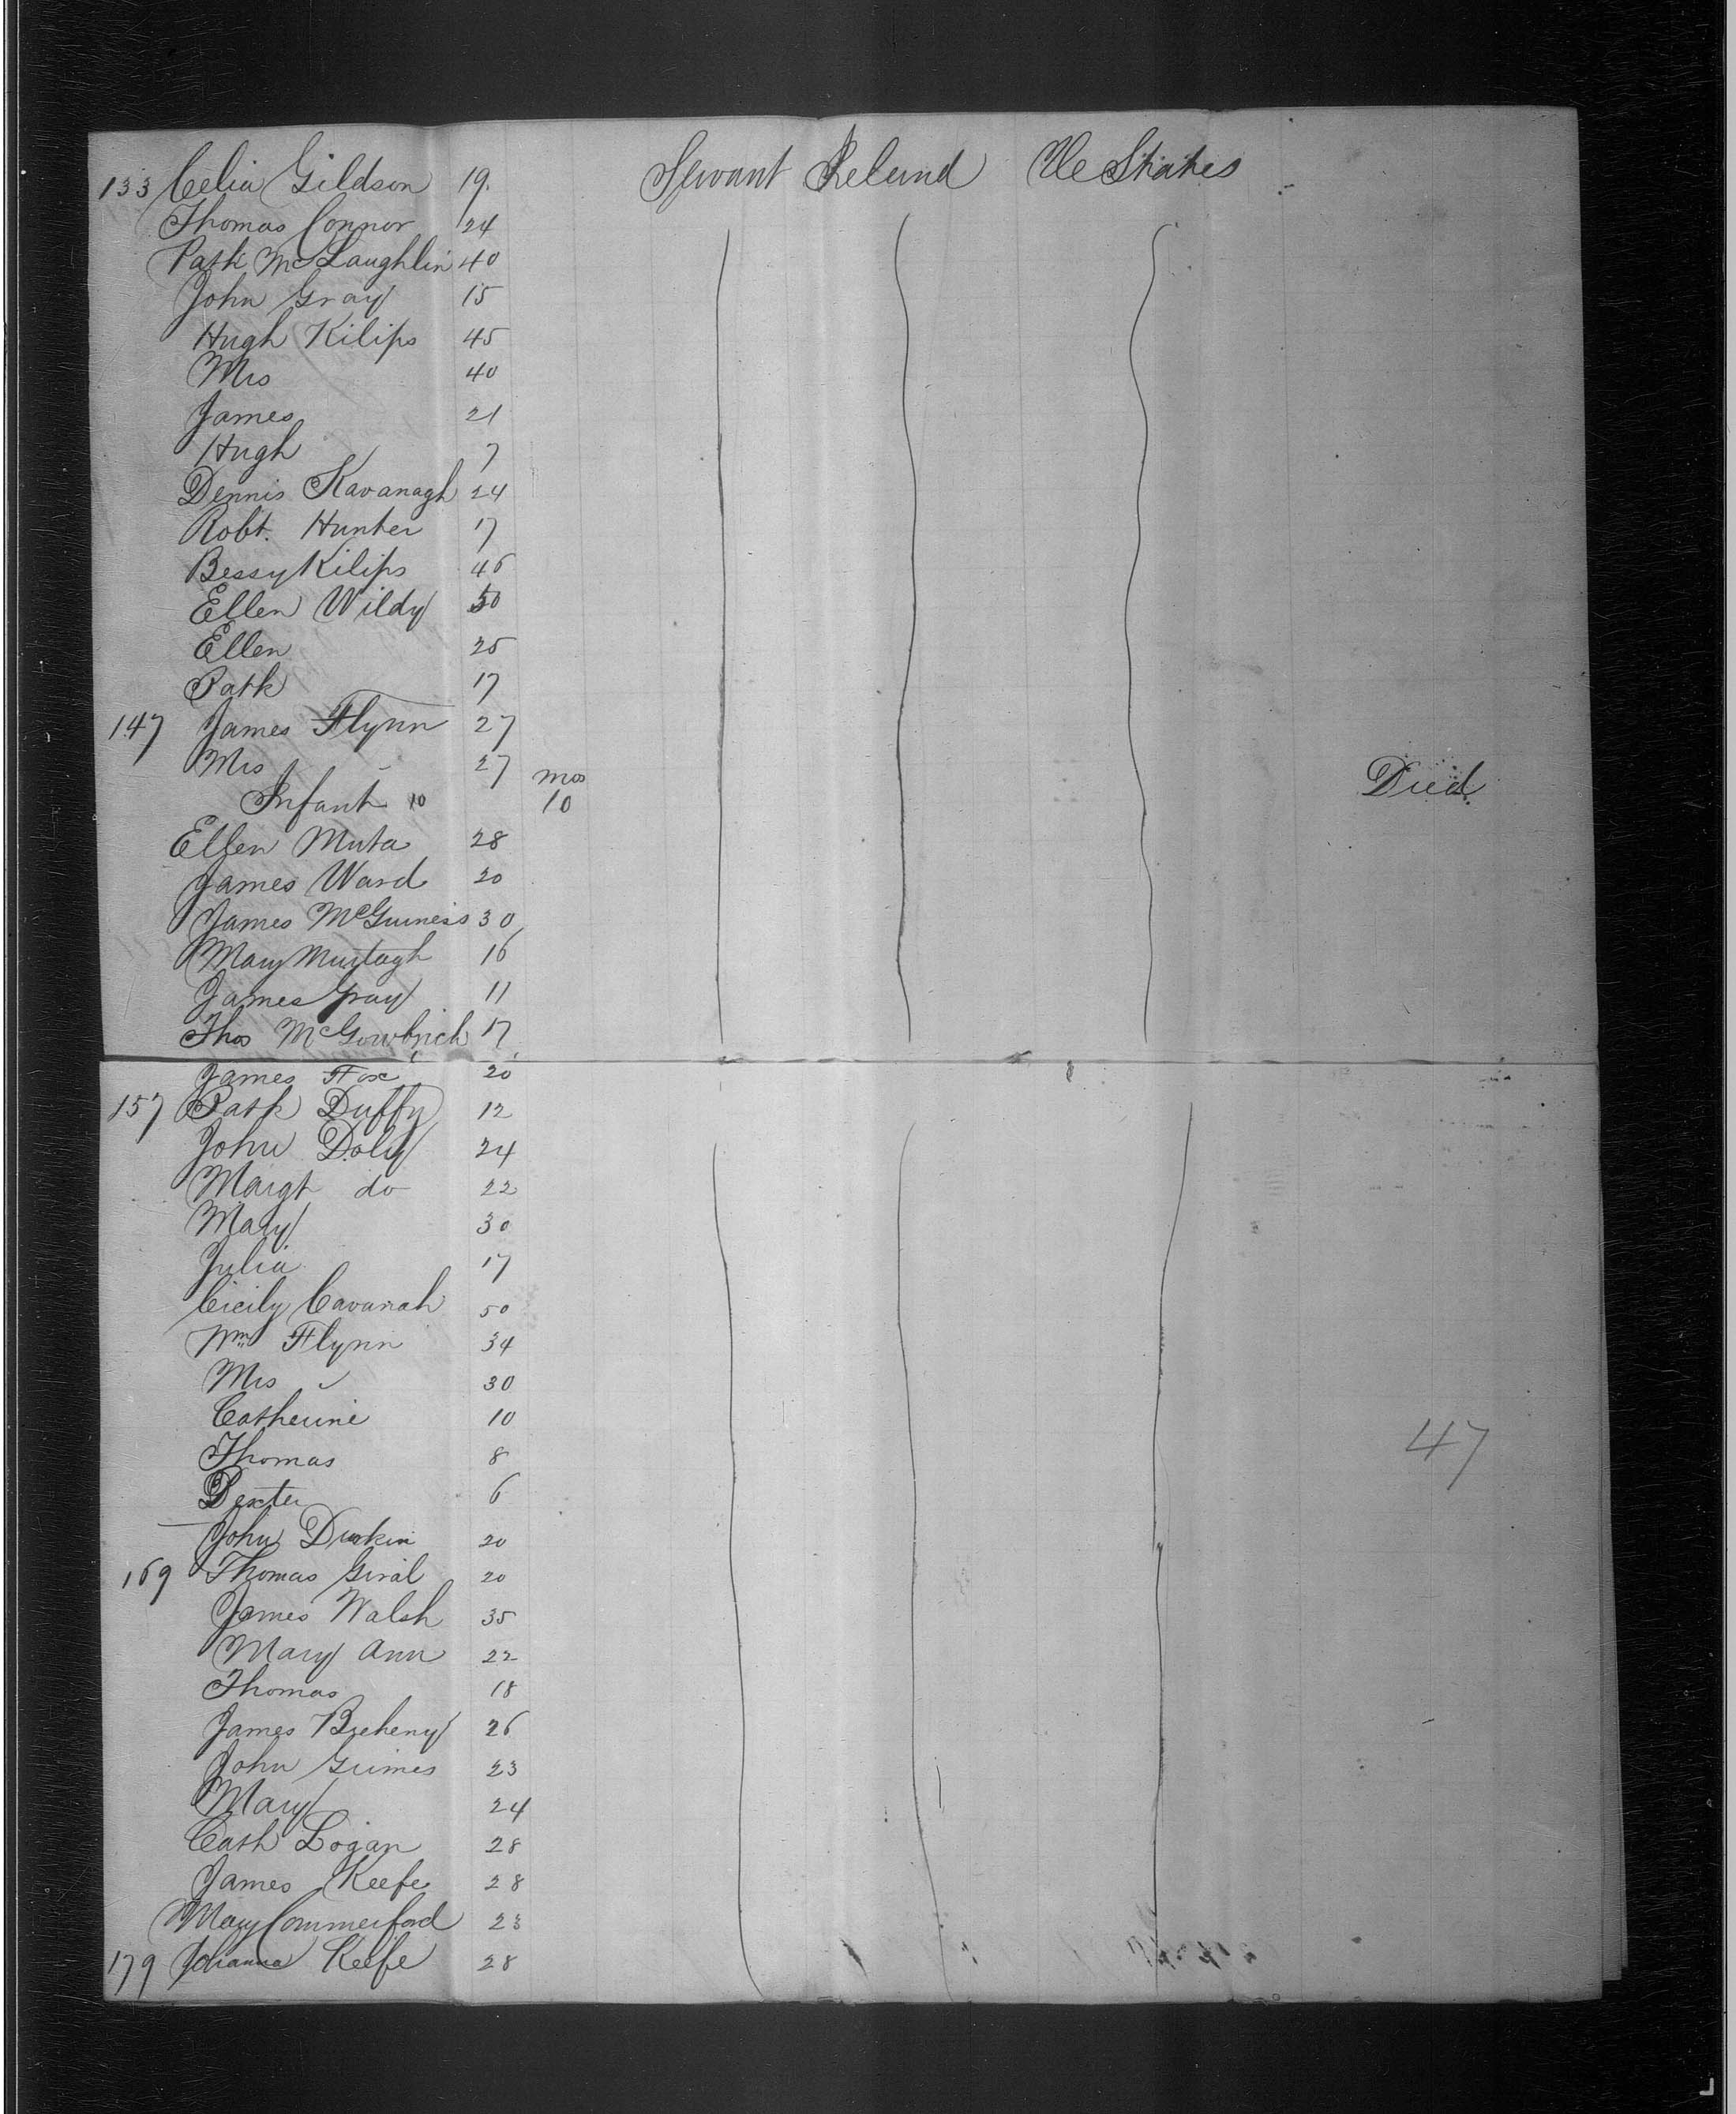 133 Celia Gildson 19. Servant Ireland Ue States
Thomas Connor 24
Patk McLaughlin 40
John Gray 15
Hugh Kilips 45
Mrs 40
James 21
Hugh 7
Dennis Kavanagh 24
Robt. Hunter 17
Bessy Kilips 46
Ellen Wildy 50
Ellen 25
Patk 17
147 James Flynn 27
Mrs 27 mos
Infant 10 10 Died
Ellen Muta 28
James Ward 20
James McGuiness 30
Mary Murtagh 16
James Gray 11
Thos 17
James Fox 20
157 Patk Duffy 12
John Doly 24
Margt do 22
Mary 30
Julia 17
Cicily Cavanah 50
Wm Flynn 34
Mrs 30
Catherine 10
Thomas 8 47
Dexter 6
John Durkin 20
169 Thomas Giral 20
James Walsh 35
Mary Ann 22
Thomas 18
James Breheny 26
John Grimes 23
Mary 24
Cath Logan 28
James Keefe 28
Mary Commerford 23
179 Johanna Keefe 28